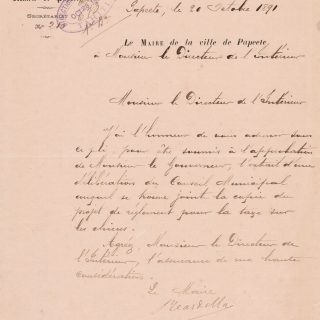 Secrétariat
Papeete, le 20 Octobre 1891
Le Maire de la ville de Papeete
à Monsieur le Directeur de l'Intérieur
Monsieur le Directeur de l'Intérieur
J'ai l'honneur de vous adresser sous
ce pli, pour être soumis à l'approbation
de Monsieur le Gouverneur, l'extrait d'une
délibération du Conseil Municipal
auquel se trouve joint la copie du
projet de règlement pour la taxe sur
les chiens.
Agréez Monsieur le Directeur de
l'Intérieur, l'assurance de ma haute
considération.
Le Maire